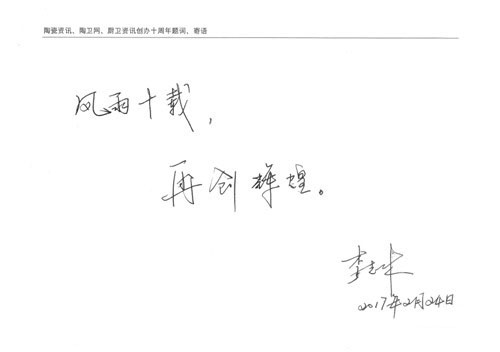 陶瓷资讯、陶卫网、厨卫资讯创办十周年题词、寄语
风雨十载，
再创辉煌。
李志
2017年2月24日